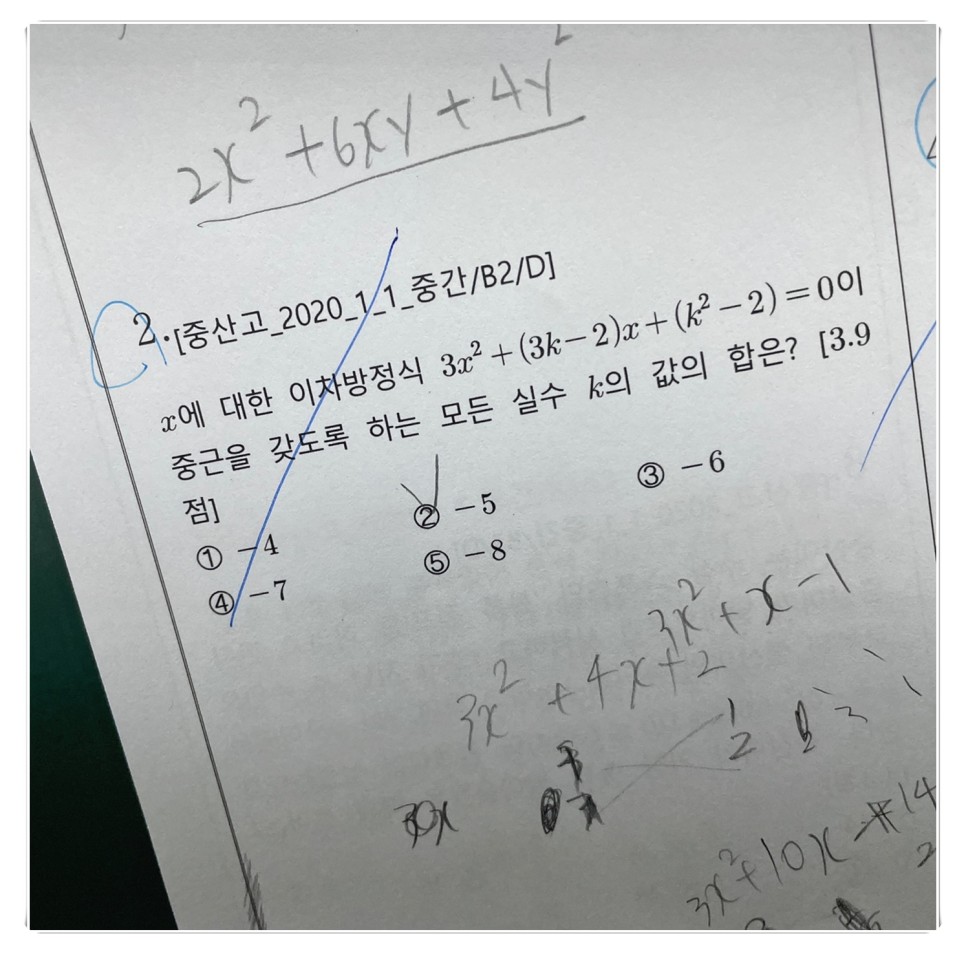 2x² + 6xy + 4y²
2.[중산고_2020_1_1_중간/B2/D]
x에 대한 이차방정식 3x² + (3k-2)x + (k²-2) = 0이
중근을 갖도록 하는 모든 실수 k의 값의 합은? [3.9
점]
① -4 ② -5 ③ -6
④ -7 ⑤ -8
3x² + x - 1
3x² + 4x + 2
1
2
3x² + 10x
14
2